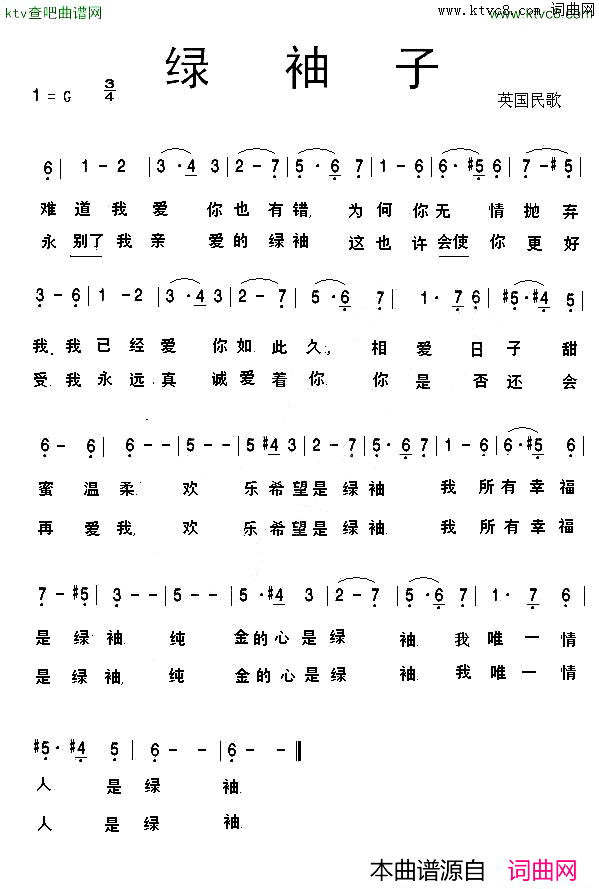 ktv查吧曲谱网
www.ktvc8.com 词曲网
www.ktvc8.com
绿 袖 子
1 = G 3/4
英国民歌
6 | 1 - 2 | 3 · 4 3 | 2 - 7 | 5 · 6 7 | 1 - 6 | 6 · #5 6 | 7 - #5 |
难 道 我 爱 你 也 有 错, 为 何 你 无 情 抛 弃
永 别了 我 亲 爱 的 绿 袖 这 也 许 会使 你 更 好
3 - 6 | 1 - 2 | 3 · 4 3 | 2 - 7 | 5 · 6 7 | 1 · 7 6 | #5 · #4 5 |
我, 我 已 经 爱 你 如 此 久, 相 爱 日 子 甜
受. 我 永 远 真 诚 爱 着 你. 你 是 否 还 会
6 - 6 | 6 - - | 5 - - | 5 #4 3 | 2 - 7 | 5 · 6 7 | 1 - 6 | 6 · #5 6 |
蜜 温 柔. 欢 乐 希 望 是 绿 袖. 我 所 有 幸 福
再 爱 我, 欢 乐 希 望 是 绿 袖. 我 所 有 幸 福
7 - #5 | 3 - - | 5 - - | 5 · #4 3 | 2 - 7 | 5 · 6 7 | 1 · 7 6 |
是 绿 袖. 纯 金 的 心 是 绿 袖. 我 唯 一 情
是 绿 袖, 纯 金 的 心 是 绿 袖. 我 唯 一 情
#5 · #4 5 | 6 - - | 6 - ‖
人 是 绿 袖.
人 是 绿 袖.
本曲谱源自 词曲网